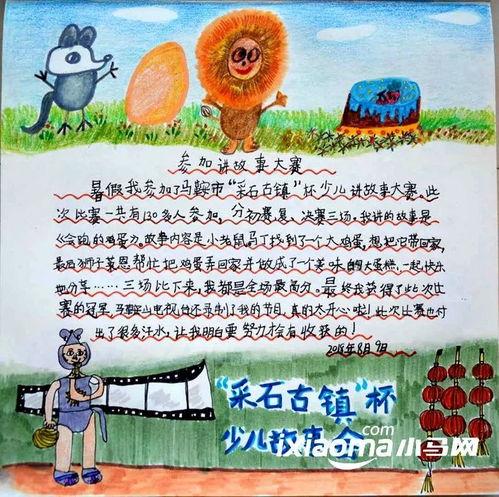 参加讲故事大赛
暑假我参加了马鞍市“采石古镇”杯少儿讲故事大赛。此
次比赛一共有130多人参加，分初赛、复、决赛三场。我讲的故事是
《会跑的鸡蛋》。故事内容是小老鼠马丁找到了一个大鸡蛋，想把它带回家，
最后狮子莱恩帮忙把鸡蛋弄回家并做成了一个美味的大蛋糕，一起快乐
地分享……三场比下来，我都是全场最高分。最终我获得了此次比
赛的冠军。马鞍山电视台还录制了我的节目，真的太开心啦！此次比赛也付
出了很多汗水，让我明白要努力才会有收获的！
2018年8月9日
“采石古镇”杯
少儿故事会
xiaoma小马网
.com